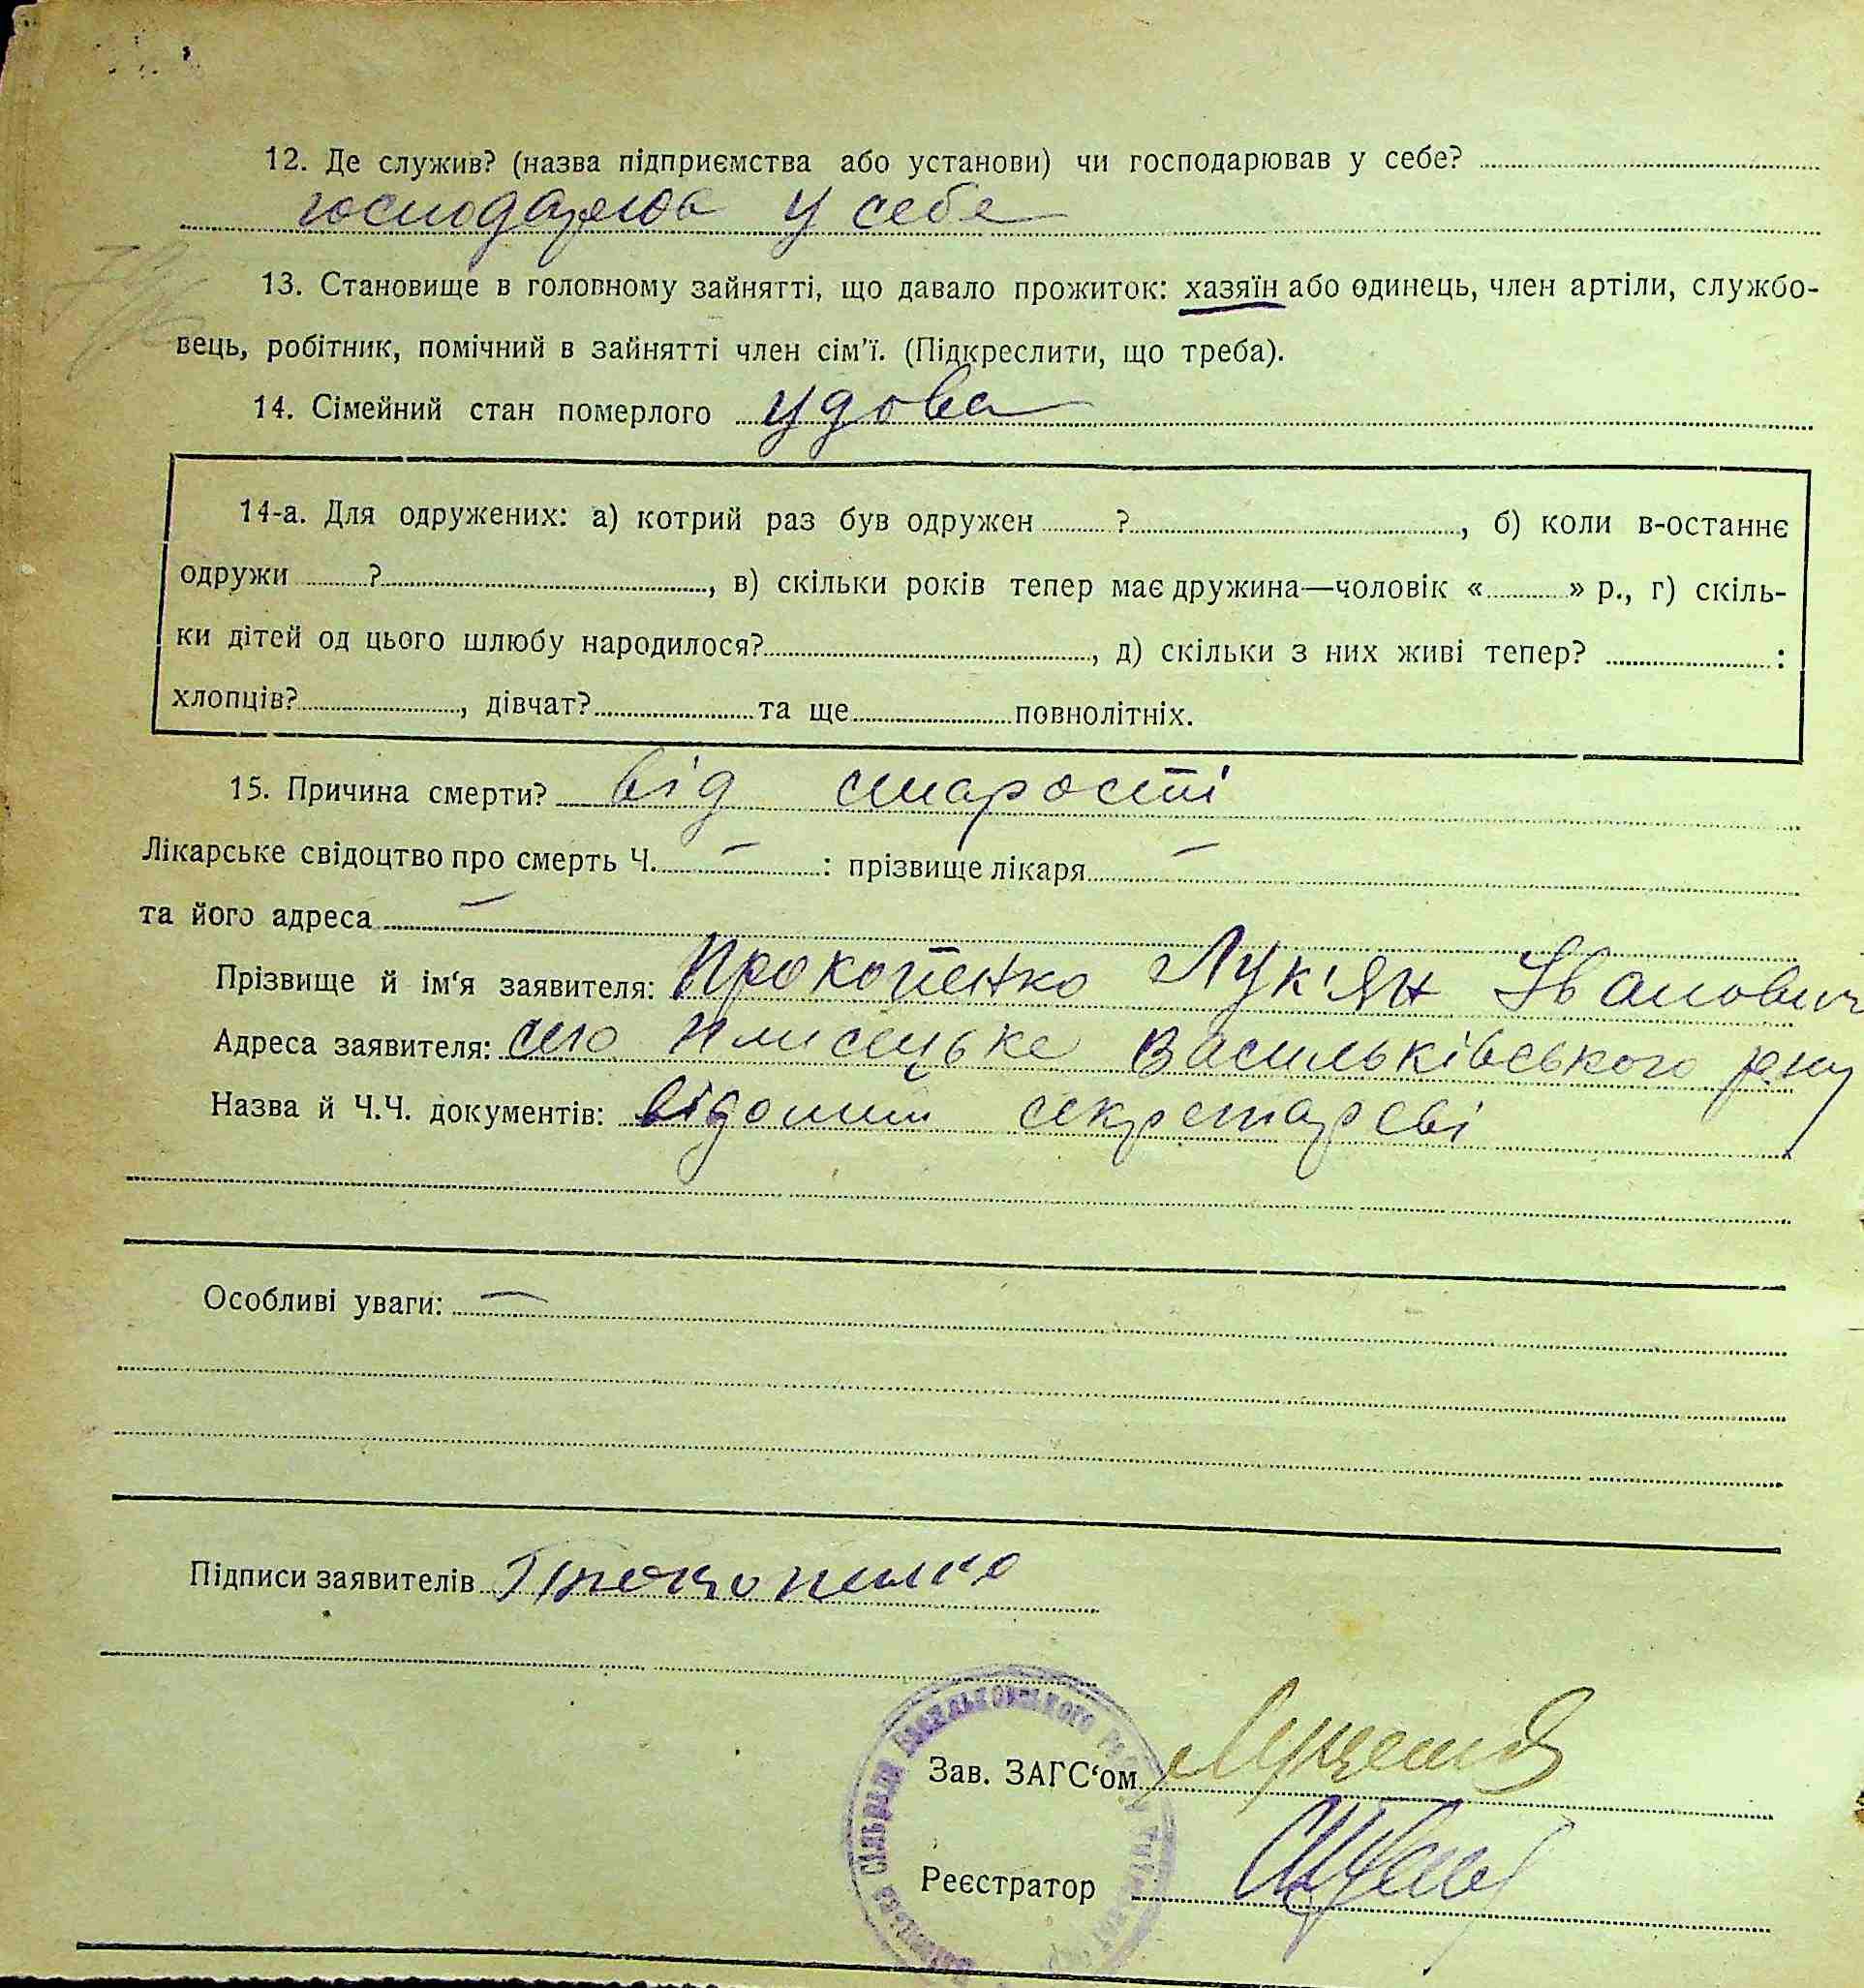 12. Де служив? (назва підприємства або установи) чи господарював у себе?
господарював у себе
13. Становище в головному зайнятті, що давало прожиток: хазяїн або одинець, член артіли, службо-
вець, робітник, помічний в зайнятті член сім'ї. (Підкреслити, що треба).
14. Сімейний стан померлого удова
14-а. Для одружених: а) котрий раз був одружен ?, б) коли в-останнє
одружи ?, в) скільки років тепер має дружина—чоловік « » р., г) скіль-
ки дітей од цього шлюбу народилося?, д) скільки з них живі тепер? :
хлопців?, дівчат? та ще повнолітніх.
15. Причина смерти? від старості
Лікарське свідоцтво про смерть Ч. — : прізвище лікаря —
та його адреса —
Прізвище й ім'я заявителя: Прокопенко Лук'ян Іванович
Адреса заявителя: село Плисецьке Васильківського р-ну
Назва й Ч.Ч. документів: відомий секретареві
Особливі уваги: —
Підписи заявителів Прокопенко
Зав. ЗАГС'ом
Реєстратор
сільради Васильковського